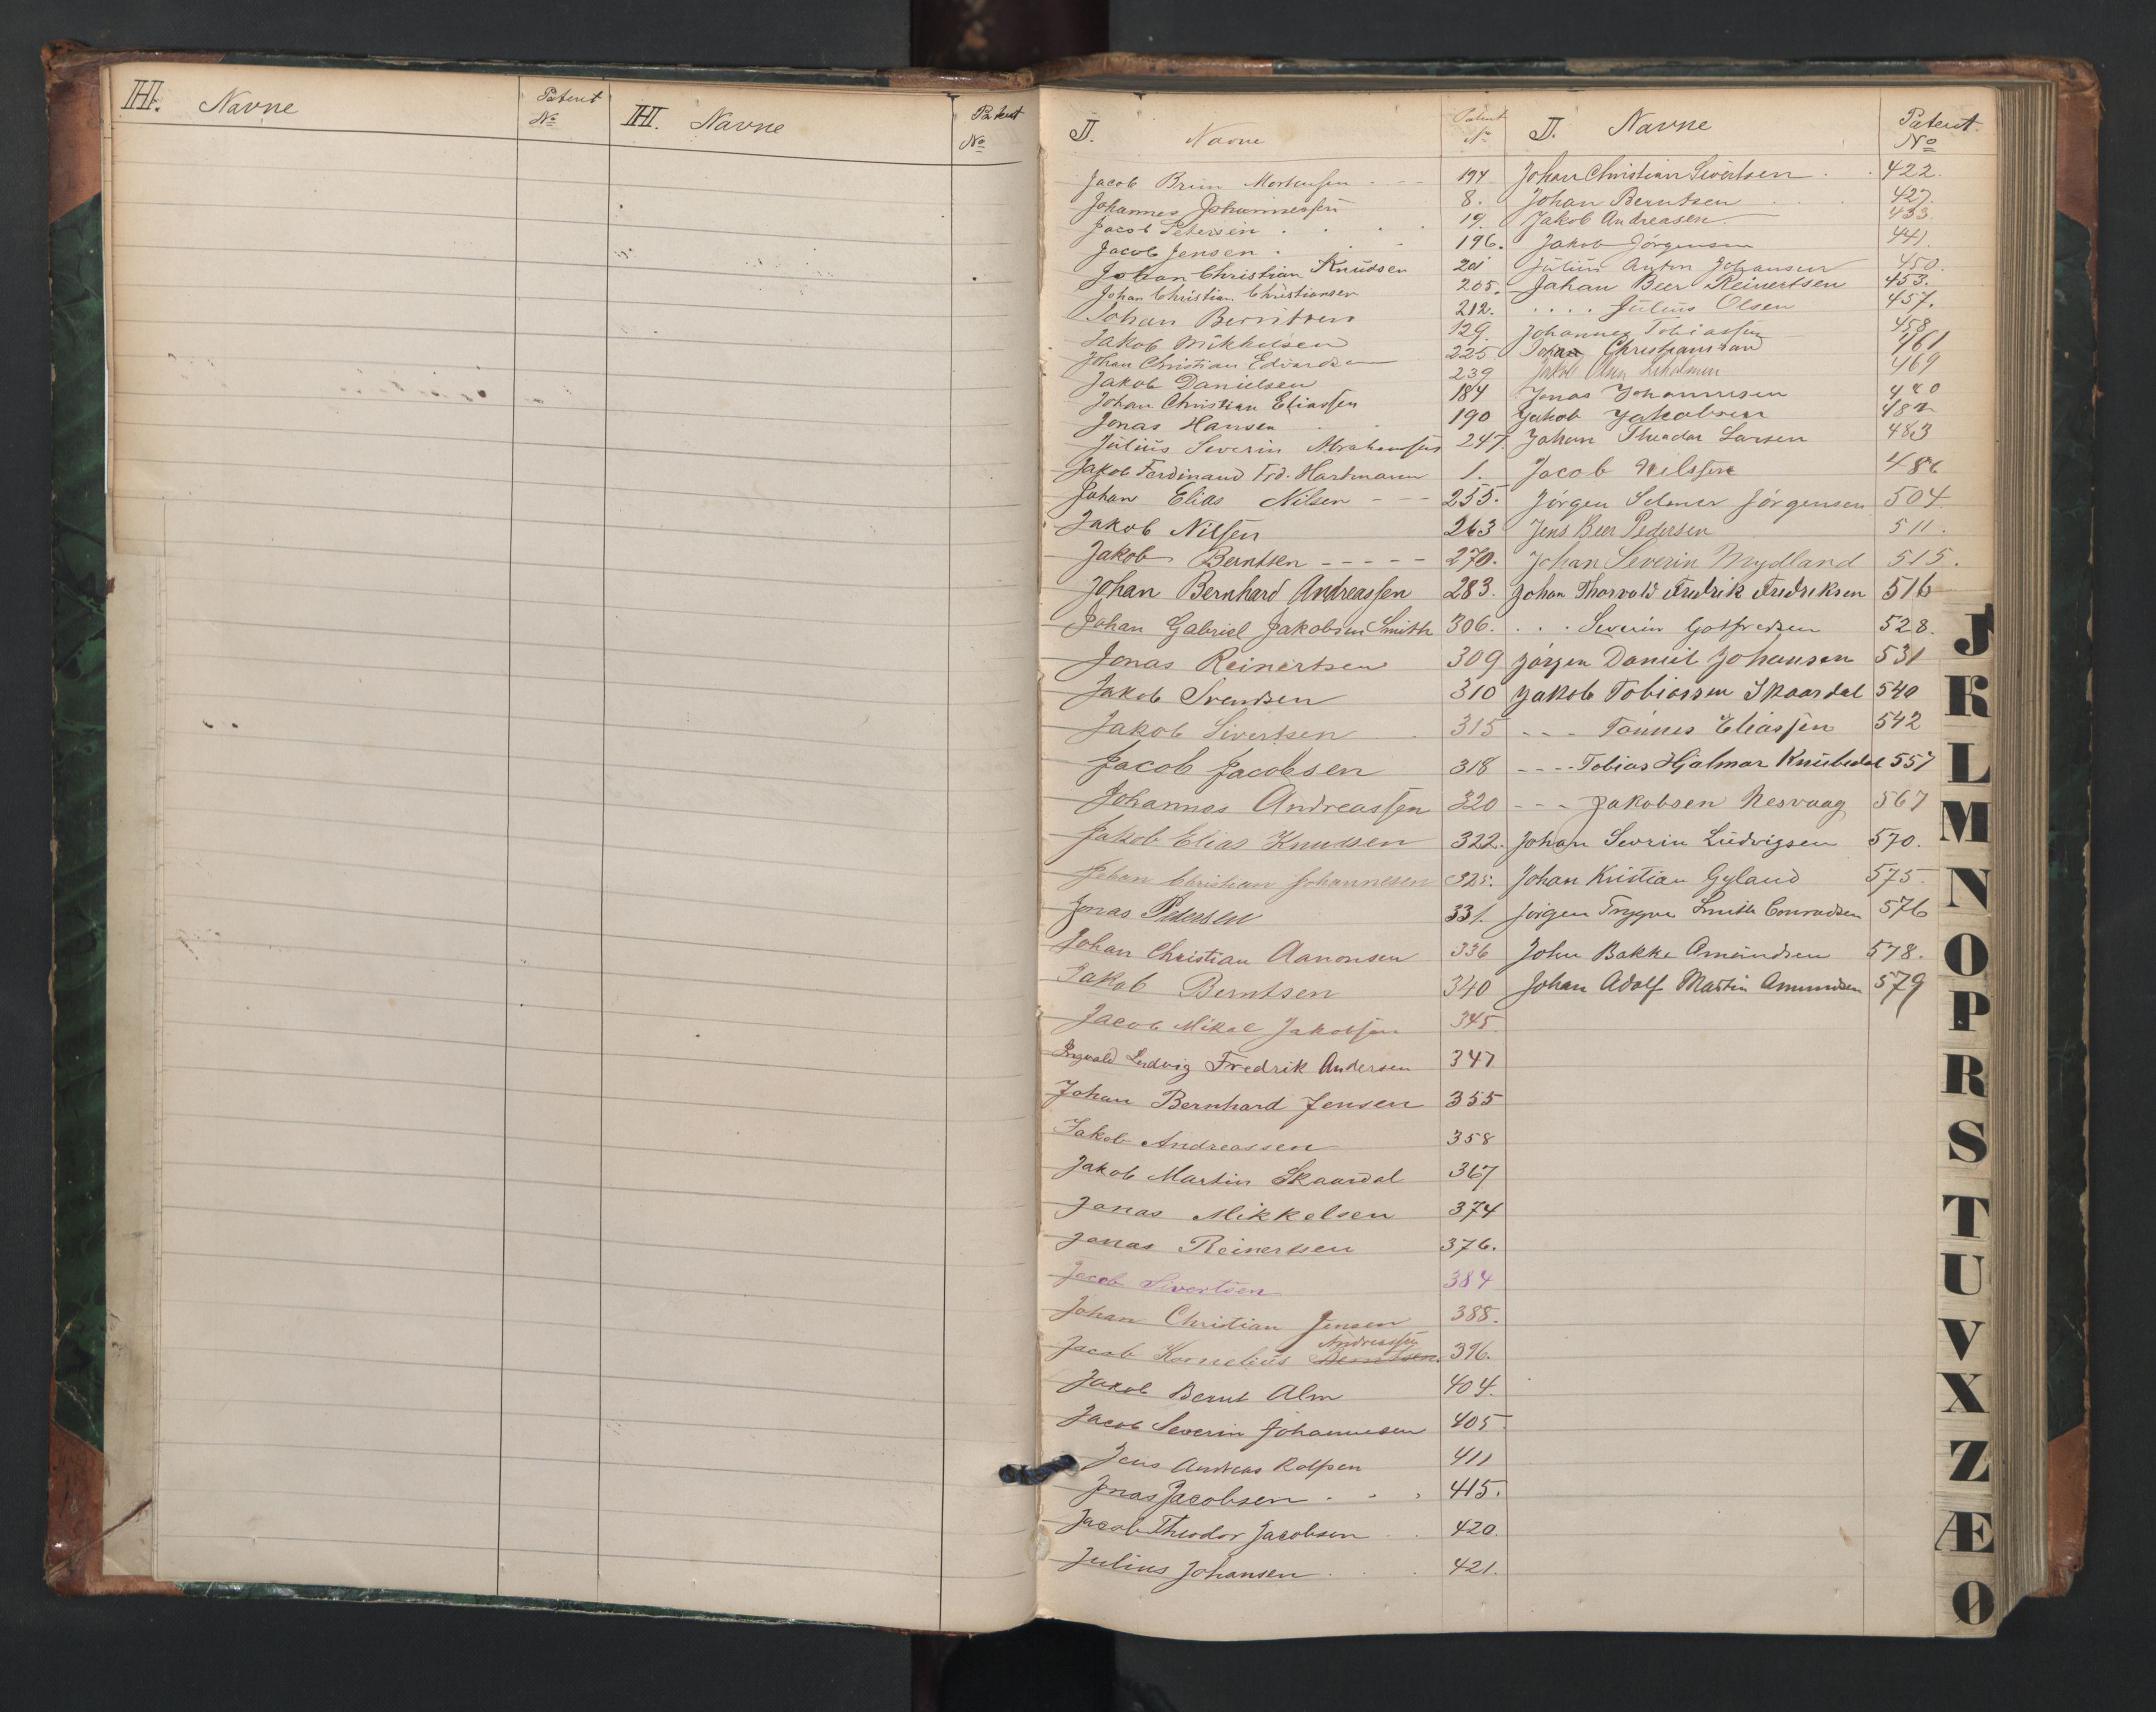 H. Navne
Patent No
H. Navne
Patent No
J. Navne
Patent No
Jacob Brun Mortensen - - - 194
Johannes Johannessen 8.
Jacob Petersen . . . . 19.
Jacob Jensen . . . - 196.
Johan Christian Knudsen 201
Johan Christian Christiansen 205.
Johan Berntsen 212.
Jakob Mikkelsen 129.
Johan Christian Edvardsen 225
Jakob Danielsen 239
Johan Christian Eliassen 184
Jonas Hansen . . 190
Julius Severin Abrahamsen 247.
Jakob Ferdinand Frd. Hartmann 1.
Johan Elias Nilsen - - - 255.
Jakob Nilsen 263
Jakob Berntsen - - - - - 270.
Johan Bernhard Andreassen 283.
Johan Gabriel Jakobsen Smith 306.
Jonas Reinertsen 309
Jakob Svendsen 310
Jakob Sivertsen . 315
Jacob Jacobsen 318
Johannes Andreassen 320
Jakob Elias Knudsen 322.
Johan Christian Johannesen 325.
Jonas Pedersen 331.
Johan Christian Aanonsen 336
Jakob Berntsen 340
Jacob Mikal Jakobsen 345.
Ingvald Ludvig Fredrik Andersen 347
Johan Bernhard Jensen 355
Jakob Andreassen 358
Jakob Martin Skaardal 367
Jonas Mikkelsen 374
Jonas Reinertsen 376.
Jacob Sivertsen 384
Johan Christian Jensen 388.
Andreassen
Jacob Kornelius Berntsen 396.
Jakob Bernt Alm 404.
Jacob Severin Johannesen 405
Jens Andreas Rolfsen 411
Jonas Jacobsen . . . 415.
Jacob Theodor Jacobsen . . 420.
Julius Johansen . . . 421.
J. Navne
Patent. No
Johan Christian Sivertsen . . 422.
Johan Berntsen . . . 427.
Jakob Andreasen 433
Jakob Jörgensen 441.
Julius Anton Johansen 450.
Johan Beer Reinertsen 453.
. . . . Julius Olsen 457.
Johannes Tobiassen 458
Johan Christiansand 461
Jakob Olsen 469
Jonas Johannesen 480
Jakob Jakobsen 482
Johan Theodor Larsen 483
Jacob Nilssen 486
Jörgen Selmer Jörgensen 504
Jens Beer Pedersen 511.
Johan Severin Mydland 515.
Johan Thorvald Fredrik Fredriksen 516
. . . Severin Gotfredsen 528.
Jörgen Daniel Johansen 531
Jakob Tobiassen Skaardal 540
- - - Tönnes Eliassen 542
- - - - Tobias Hjalmar Knibedal 557
- - - Jakobsen Nesvaag 567
Johan Sevrin Ludvigsen 570.
Johan Kristian Gyland 575.
Jörgen Trygve Smith Conradsen 576
John Bakke Amundsen 578.
Johan Adolf Martin Amundsen 579
J
K
L
M
N
O
P
R
S
T
U
V
X
Z
Æ
Ø